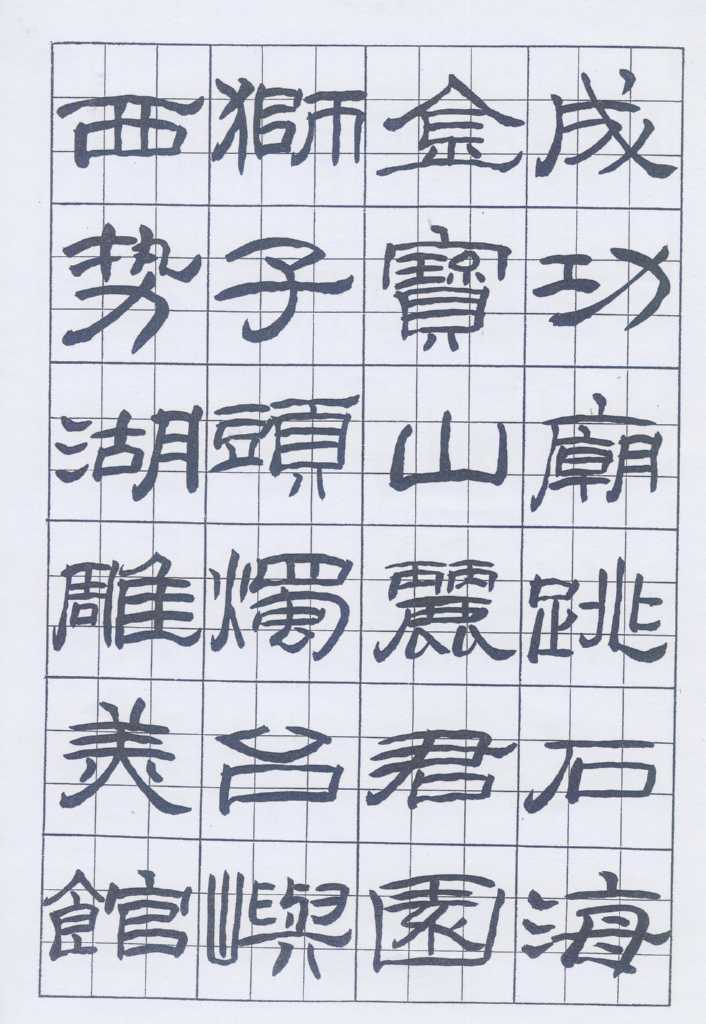 成功廟跳石海
金寶山麗君園
獅子頭燭台嶼
西势湖雕美館